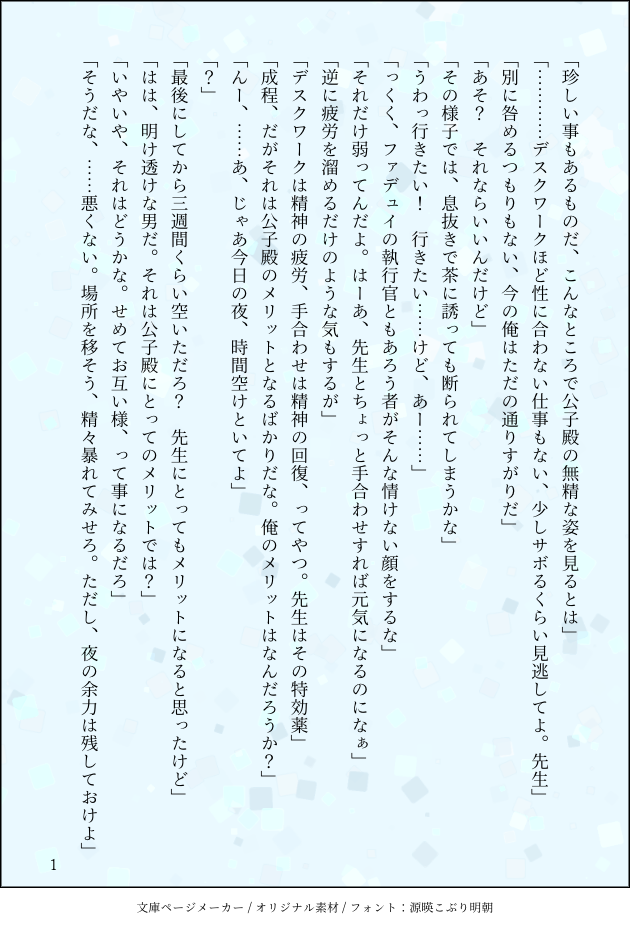 「珍しい事もあるものだ、こんなところで公子殿の無精な姿を見るとは」
「…………デスクワークほど性に合わない仕事もない、少しサボるくらい見逃してよ。先生」
「別に咎めるつもりもない、今の俺はただの通りすがりだ」
「あそ？　それならいいんだけど」
「その様子では、息抜きで茶に誘っても断られてしまうかな」
「うわっ行きたい！　行きたい……けど、あー……」
「っくく、ファデュイの執行官ともあろう者がそんな情けない顔をするな」
「それだけ弱ってんだよ。はーあ、先生とちょっと手合わせすれば元気になるのになぁ」
「逆に疲労を溜めるだけのような気もするが」
「デスクワークは精神の疲労、手合わせは精神の回復、ってやつ。先生はその特効薬」
「成程、だがそれは公子殿のメリットとなるばかりだな。俺のメリットはなんだろうか？」
「んー、……あ、じゃあ今日の夜、時間空けといてよ」
「？」
「最後にしてから三週間くらい空いただろ？　先生にとってもメリットになると思ったけど」
「はは、明け透けな男だ。それは公子殿にとってのメリットでは？」
「いやいや、それはどうかな。せめてお互い様、って事になるだろ」
「そうだな、……悪くない。場所を移そう、精々暴れてみせろ。ただし、夜の余力は残しておけよ」
1
文庫ページメーカー / オリジナル素材 / フォント：源暎こぶり明朝